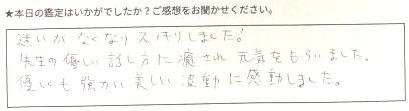 ★本日の鑑定はいかがでしたか？ご感想をお聞かせください。
迷いがなくなりスッキリしました！
先生の優しい話し方に癒され元気をもらいました。
優しくも強力い美しい波動に感動しました。